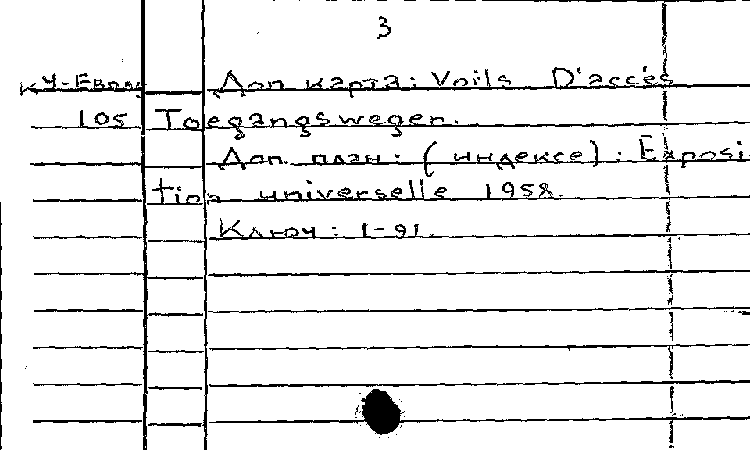 3
КУ-Европ Доп карта: Voils D'accès
105 Toegangswegen.
Доп. план: (индексе): Exposi
tion universelle 1958.
Ключ: 1-91.